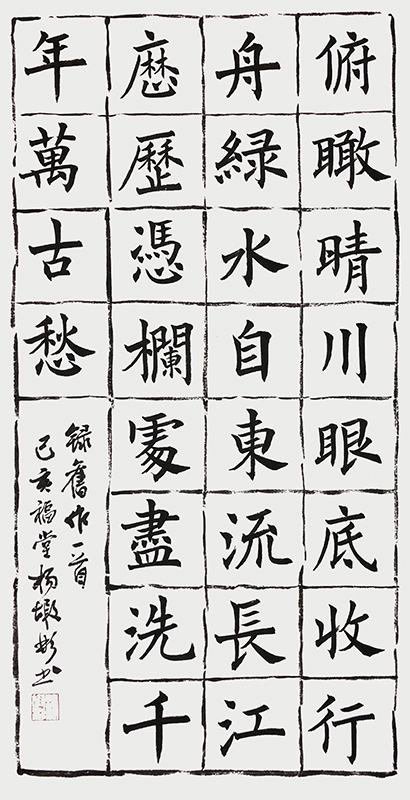 俯瞰晴川眼底收行
舟緑水自東流長江
歷歷憑欄處盡洗千
年萬古愁
錄舊作一首
己亥福堂杨彬书